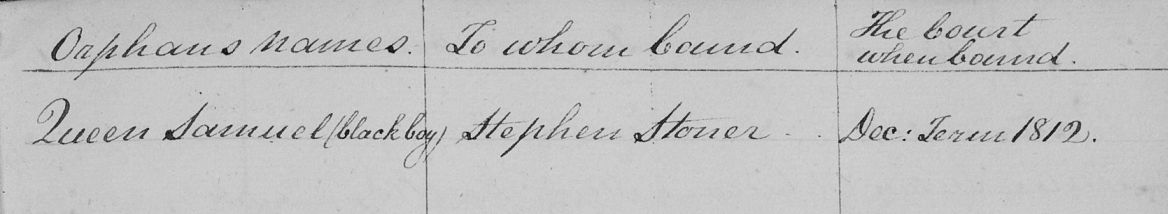 Orphans names. To whom bound. The Court
when bound.
Queen Samuel (black boy) Stephen Stoner Dec: Term 1812.